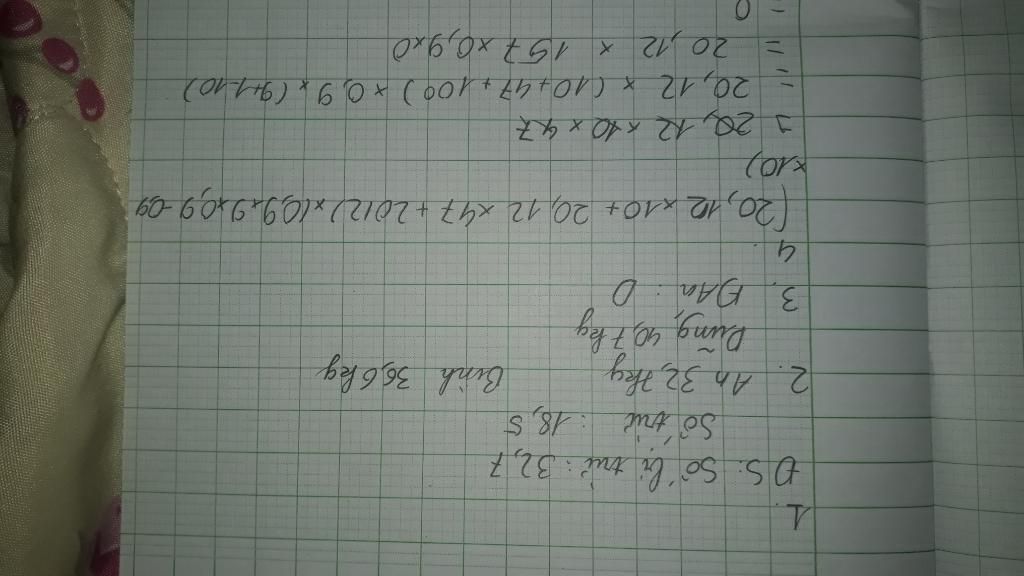 1.
ĐS: Số bị trừ: 32,7
Số trừ: 18,5
2. An 32,7kg Bình 36,6kg
Dũng 40,7kg
3. ĐÁn: D
4.
(20,12 x 10 + 20,12 x 47 + 2012) x (0,9 x 9 x 0,9 - 0,9
x 10)
= 20,12 x 10 x 47
= 20,12 x (10 + 47 + 100) x 0,9 x (9+1-10)
= 20,12 x 157 x 0,9 x 0
= 0